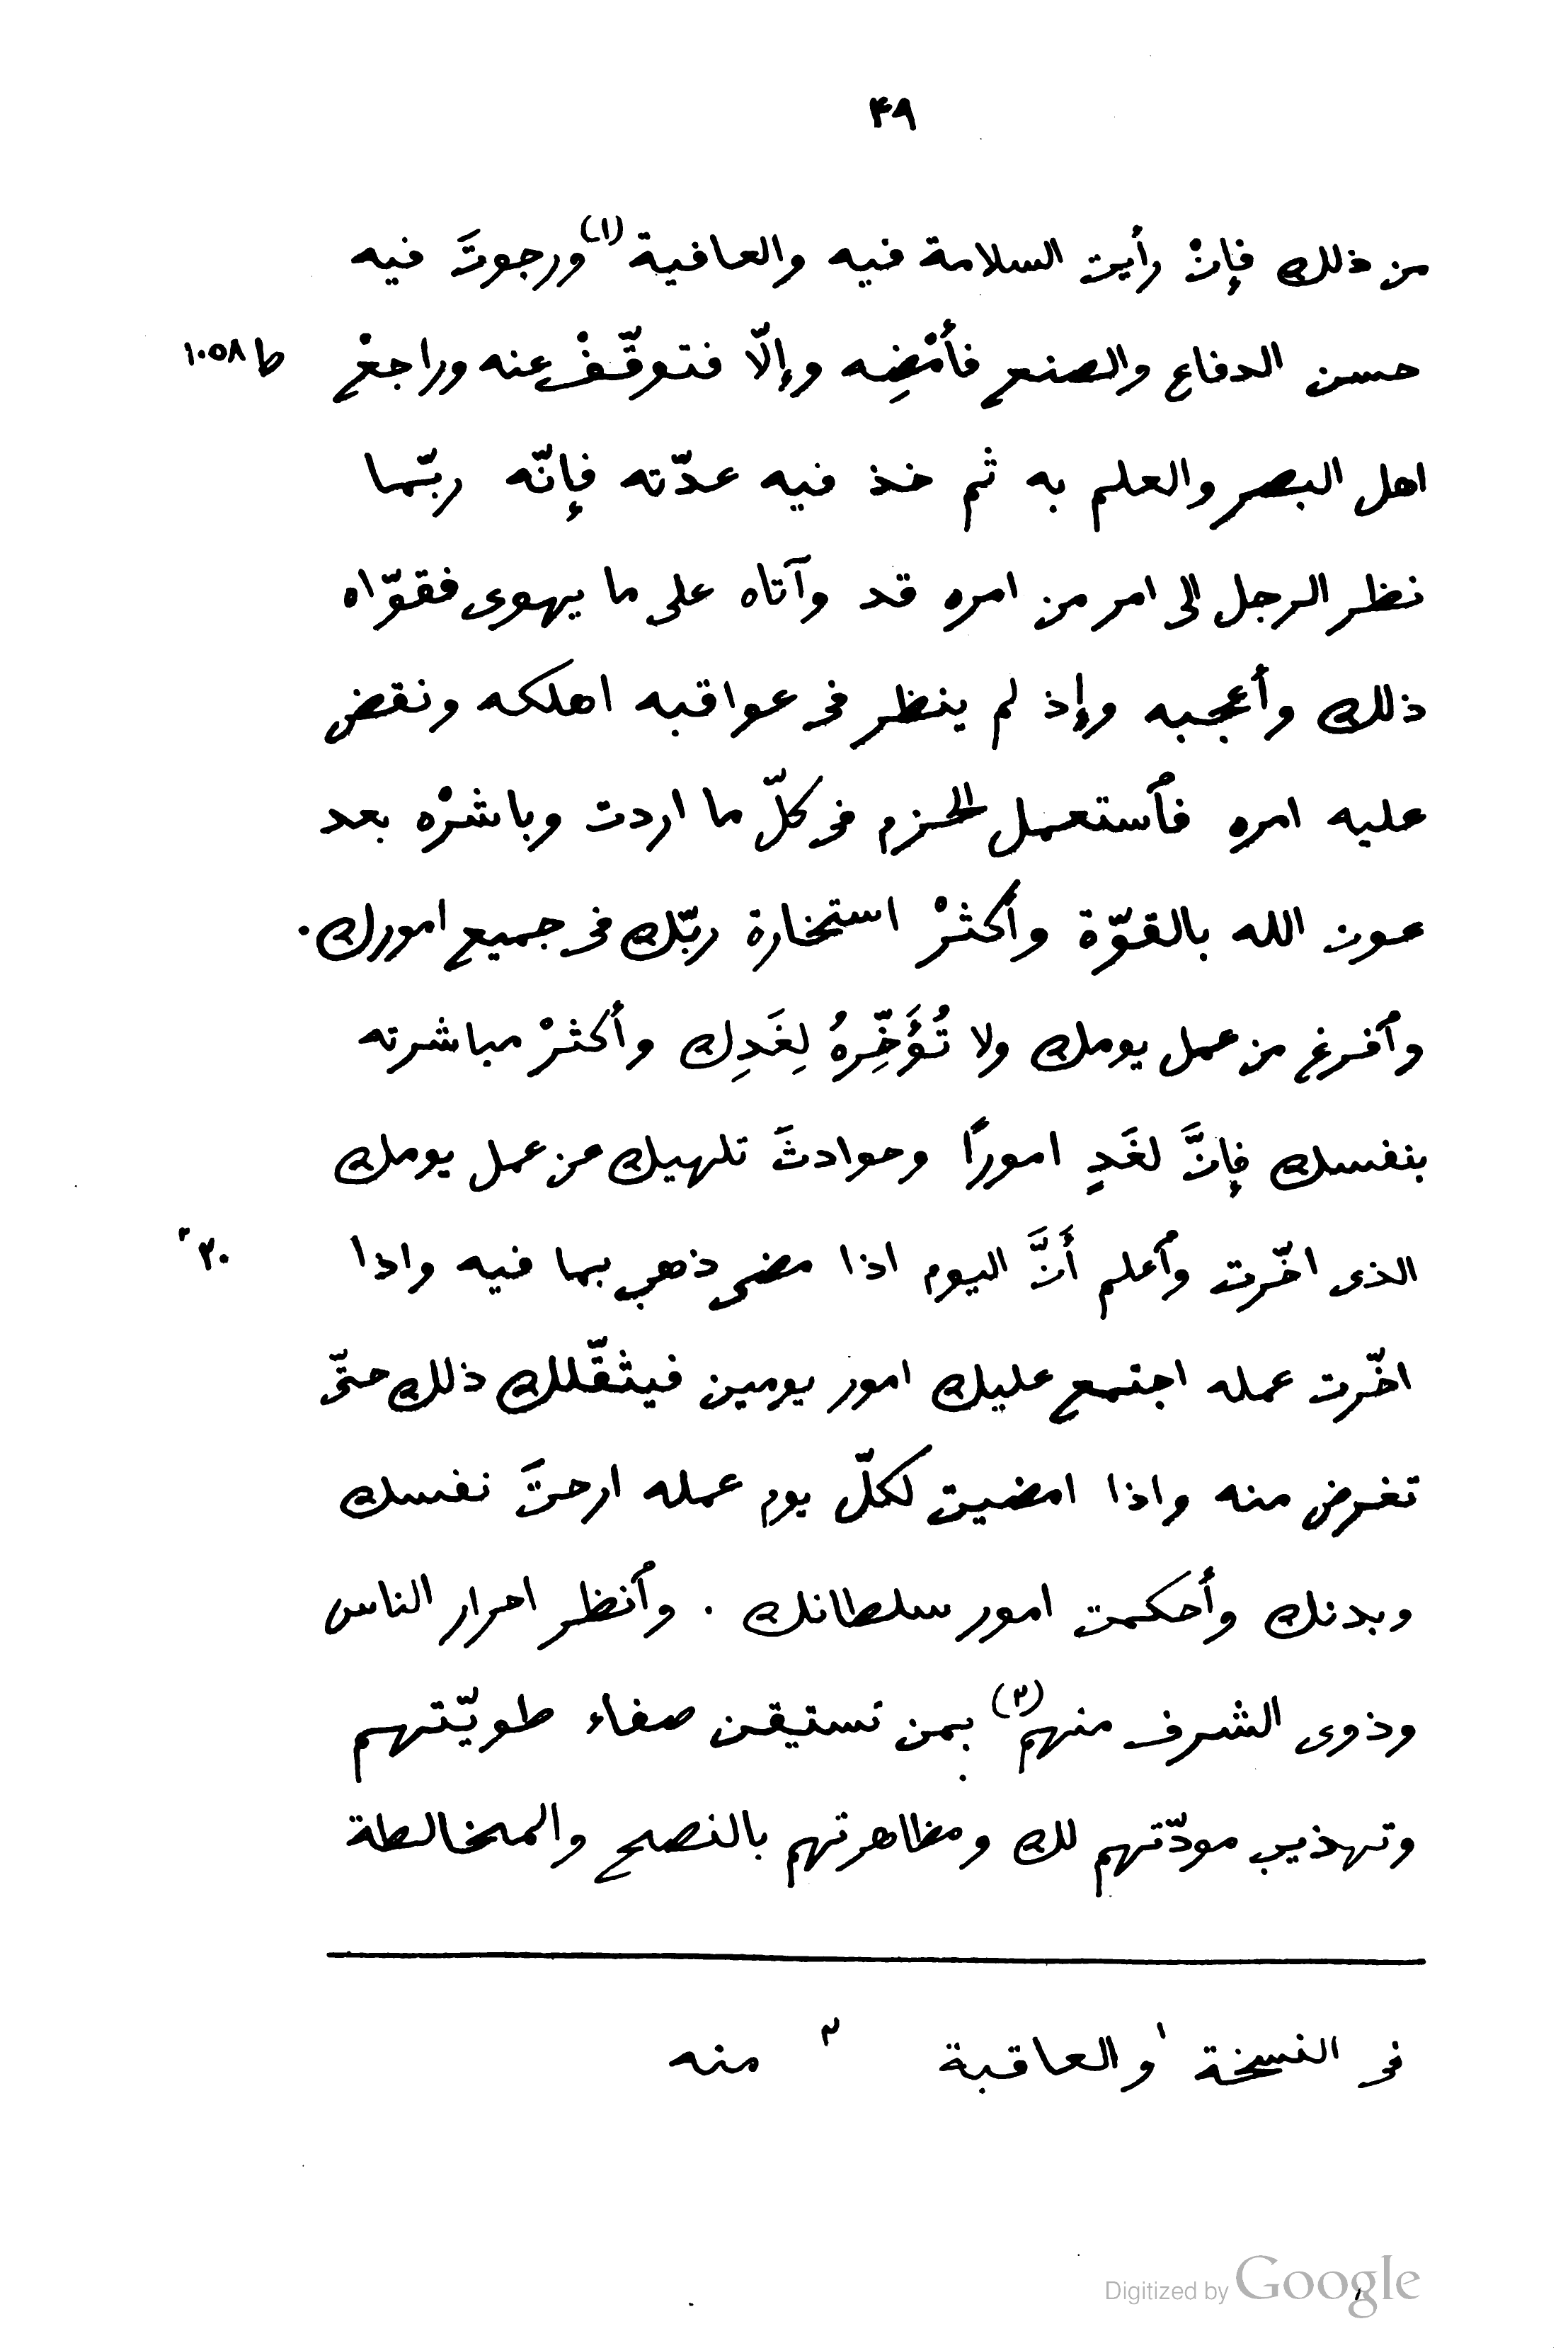 ۴٩
من ذلك فإنْ رأيت السلامة فيه والعافية (١) ورجوتَ فيه
حسن الدفاع والصنع فأمْضِه وإلّا فتوقّفْ عنه وراجعْ ط ١٠٥٨
اهل البصر والعلم به ثم خذ فيه عدّته فإنّه ربّما
نظر الرجل الى امر من امره قد وآتاه على ما يهوى فقوّاه
ذلك وأعجبه وإذ لم ينظر فى عواقبه اهلكه ونقض
عليه امره فٱستعمل الحزم فى كلّ ما اردت وباشرْه بعد
عون الله بالقوّة وأكثرْ استخارة ربّك فى جميع امورك .
وٱفرغ من عمل يومك ولا تُؤَخِّرهُ لِغَدِك وأكثرْ مباشرته
بنفسك فإنَّ لغَدٍ امورًا وحوادثَ تلهيك عن عمل يومك
الذى اخّرت وٱعلم أَنَّ اليوم اذا مضى ذهب بما فيه واذا
اخّرت عمله اجتمع عليك امور يومين فيثقّلك ذلك حتّى
تغرض منه واذا امضيت لكلّ يوم عمله ارحتَ نفسك
وبدنك وأحكمت امور سلطانك . وٱنظر احرار الناس
وذوى الشرف منهم (٢) بمن تستيقن صفاء طويّتهم
وتهذيب مودّتهم لك ومظاهرتهم بالنصح والمخالطة
فى النسخة ١ والعاقبة ٢ منه
Digitized by Google